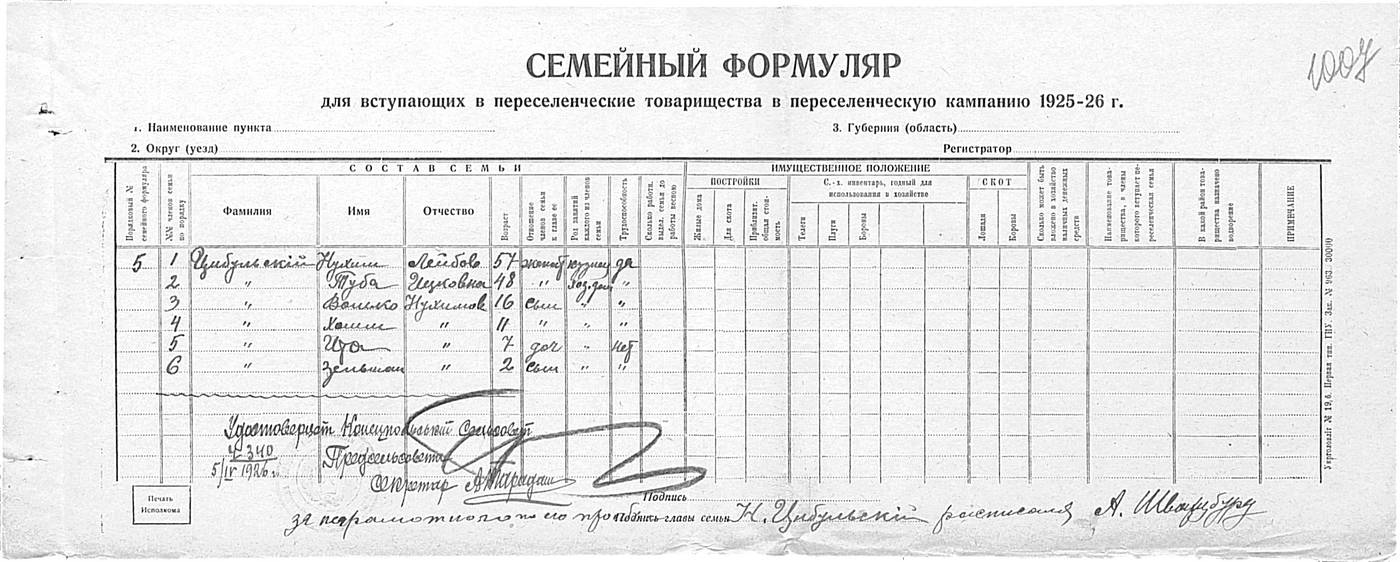 1007
СЕМЕЙНЫЙ ФОРМУЛЯР
для вступающих в переселенческие товарищества в переселенческую кампанию 1925-26 г.
1. Наименование пункта
3. Губерния (область)
2. Округ (уезд)
Регистратор
СОСТАВ СЕМЬИ
ИМУЩЕСТВЕННОЕ ПОЛОЖЕНИЕ
Порядковый № семейного формуляра
№№ членов семьи по порядку
Фамилия
Имя
Отчество
Возраст
Отношение членов семьи к главе ее
Род занятий каждого из членов семьи
Трудоспособность
Сколько работн. выдел. семья до работы весною
ПОСТРОЙКИ
Жилые дома
Для скота
Приблизит. общая стоимость
С.-х. инвентарь, годный для использования в хозяйстве
Телеги
Плуги
Бороны
СКОТ
Лошади
Коровы
Сколько может быть вложено в хозяйство наличных денежных средств
Наименование товарищества, в члены которого вступает переселенческая семья
В какой район товарищества назначено водворение
ПРИМЕЧАНИЕ
5 1 Цибульскій Нухим Лейбов 57 женат кузнец да
2 " Туба Ицковна 48 " хоз. дом "
3 " Волько Нухимов 16 сын " "
4 " Хаим " 11 " " "
5 " Ита " 7 доч " нет
6 " Зельман " 2 сын " "
Удостоверяет Конецпольський Сельсовет
Ч 340
5/IV 1926 г.
Предсельсовета
Секретар
Печать Исполкома
Подпись
за неграмотного по его прозьбе
Подпись главы семьи Н. Цибульскій расписался А. Шварцбурд
Укрголовліт № 19,6. Первая тип. ГИУ. Зас. № 963. 30000